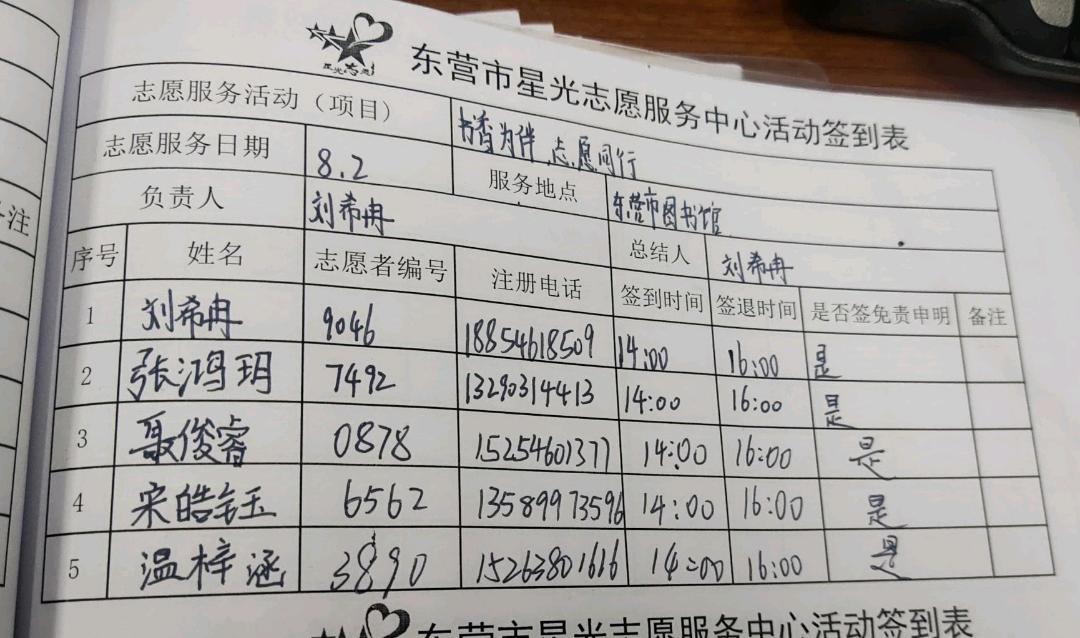 星光志愿
东营市星光志愿服务中心活动签到表
志愿服务活动（项目） 书香为伴 志愿同行
志愿服务日期 8.2 服务地点 东营市图书馆
负责人 刘希冉 总结人 刘希冉
序号 姓名 志愿者编号 注册电话 签到时间 签退时间 是否签免责申明 备注
1 刘希冉 9046 18854618509 14:00 16:00 是
2 张鸿玥 7492 13290314413 14:00 16:00 是
3 聂俊睿 0878 15254601377 14:00 16:00 是
4 宋皓钰 6562 13589973596 14:00 16:00 是
5 温梓涵 3890 15263801616 14:00 16:00 是
东营市星光志愿服务中心活动签到表
注